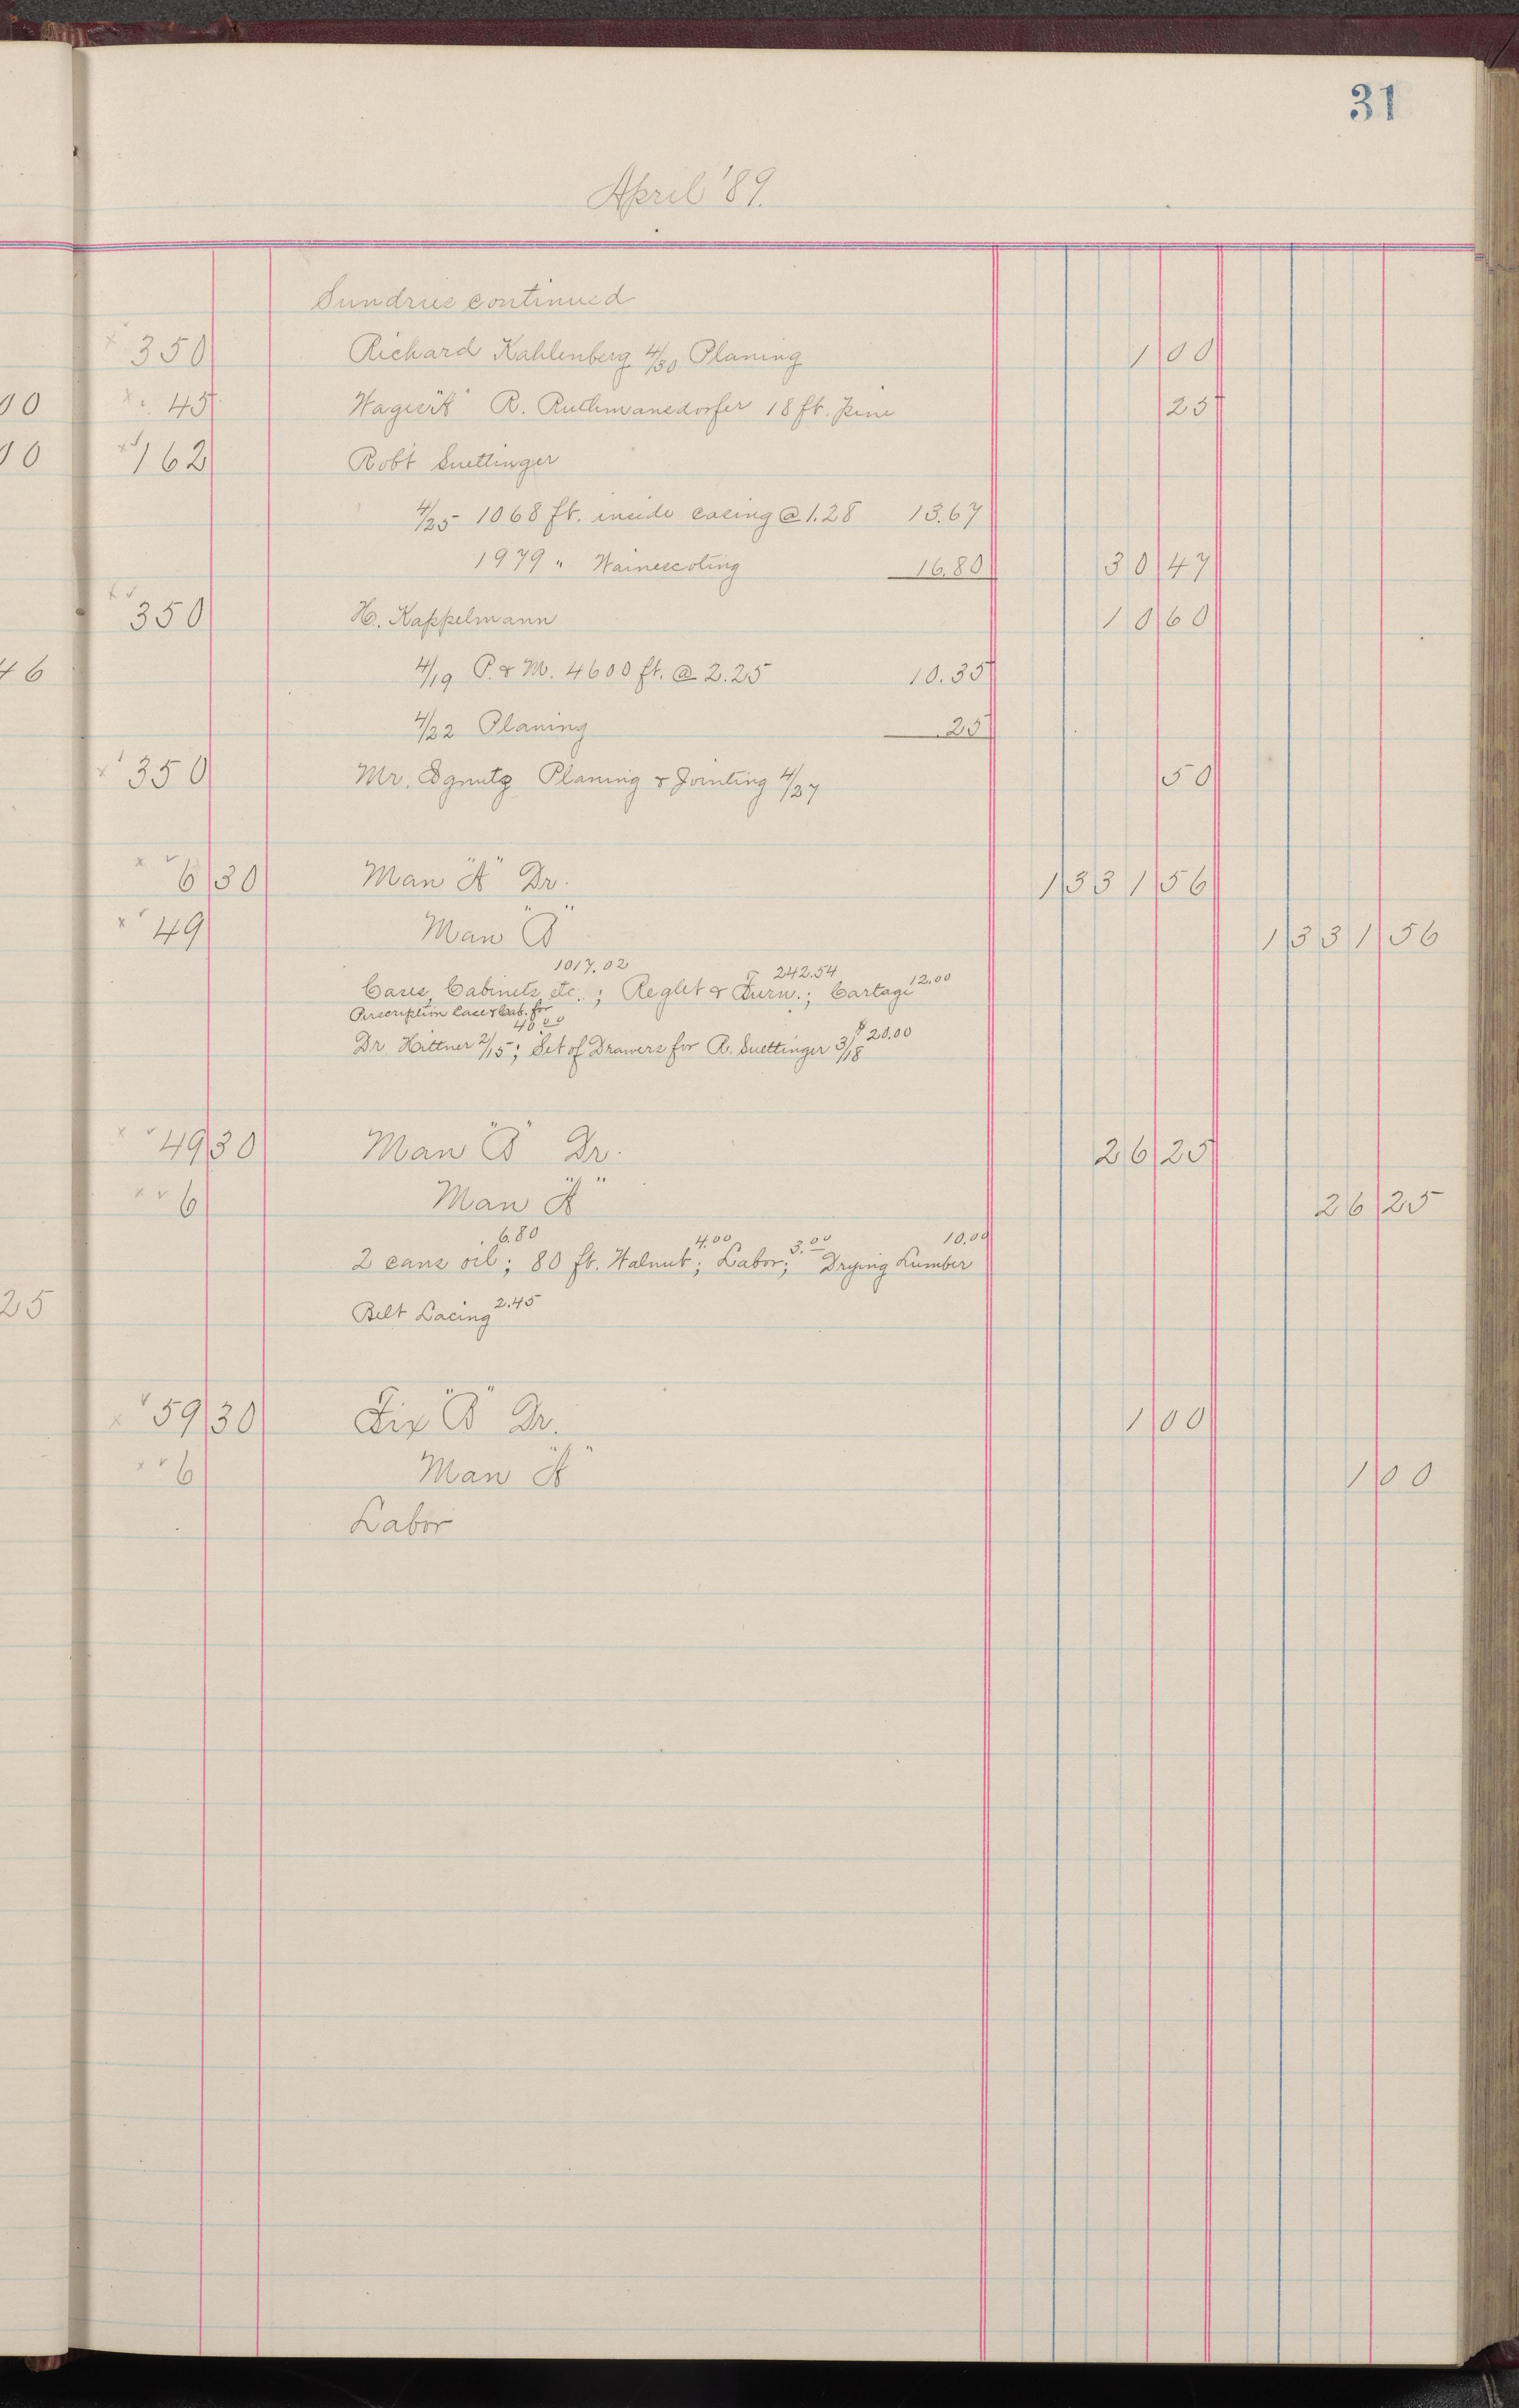 31
April '89.
Sundries continued
350 Richard Kahlenberg 4/30 Planing 1 00
00 45 Wages "A" R. Ruthmansdorfer 18 ft. Pine 25
00 162 Rob't Suettinger
4/25 1068 ft. inside casing @ 1.28 13.67
1979 " Wainescoting 16.80 30 47
350 H. Kappelmann 10 60
46 4/19 P. & M. 4600 ft. @ 2.25 10.35
4/22 Planing .25
350 Mr. Planing & Jointing 4/27 50
6 30 Man "A" Dr. 1331 56
49 Man "B" 1331 56
1017.02 242.54 12.00
Cases, Cabinets etc.; Reglet & Furn.; Cartage
Perscription Case & Cab. for
40.00 $20.00
Dr Hittner 2/15; Set of Drawers for R. Suettinger 3/18
49 30 Man "B" Dr. 26 25
6 Man "A" 26 25
6.80 4.00 3.00 10.00
2 cans oil; 80 ft. Walnut; Labor; Drying Lumber
25 Belt Lacing 2.45
59 30 Fix "B" Dr. 1 00
6 Man "A" 1 00
Labor